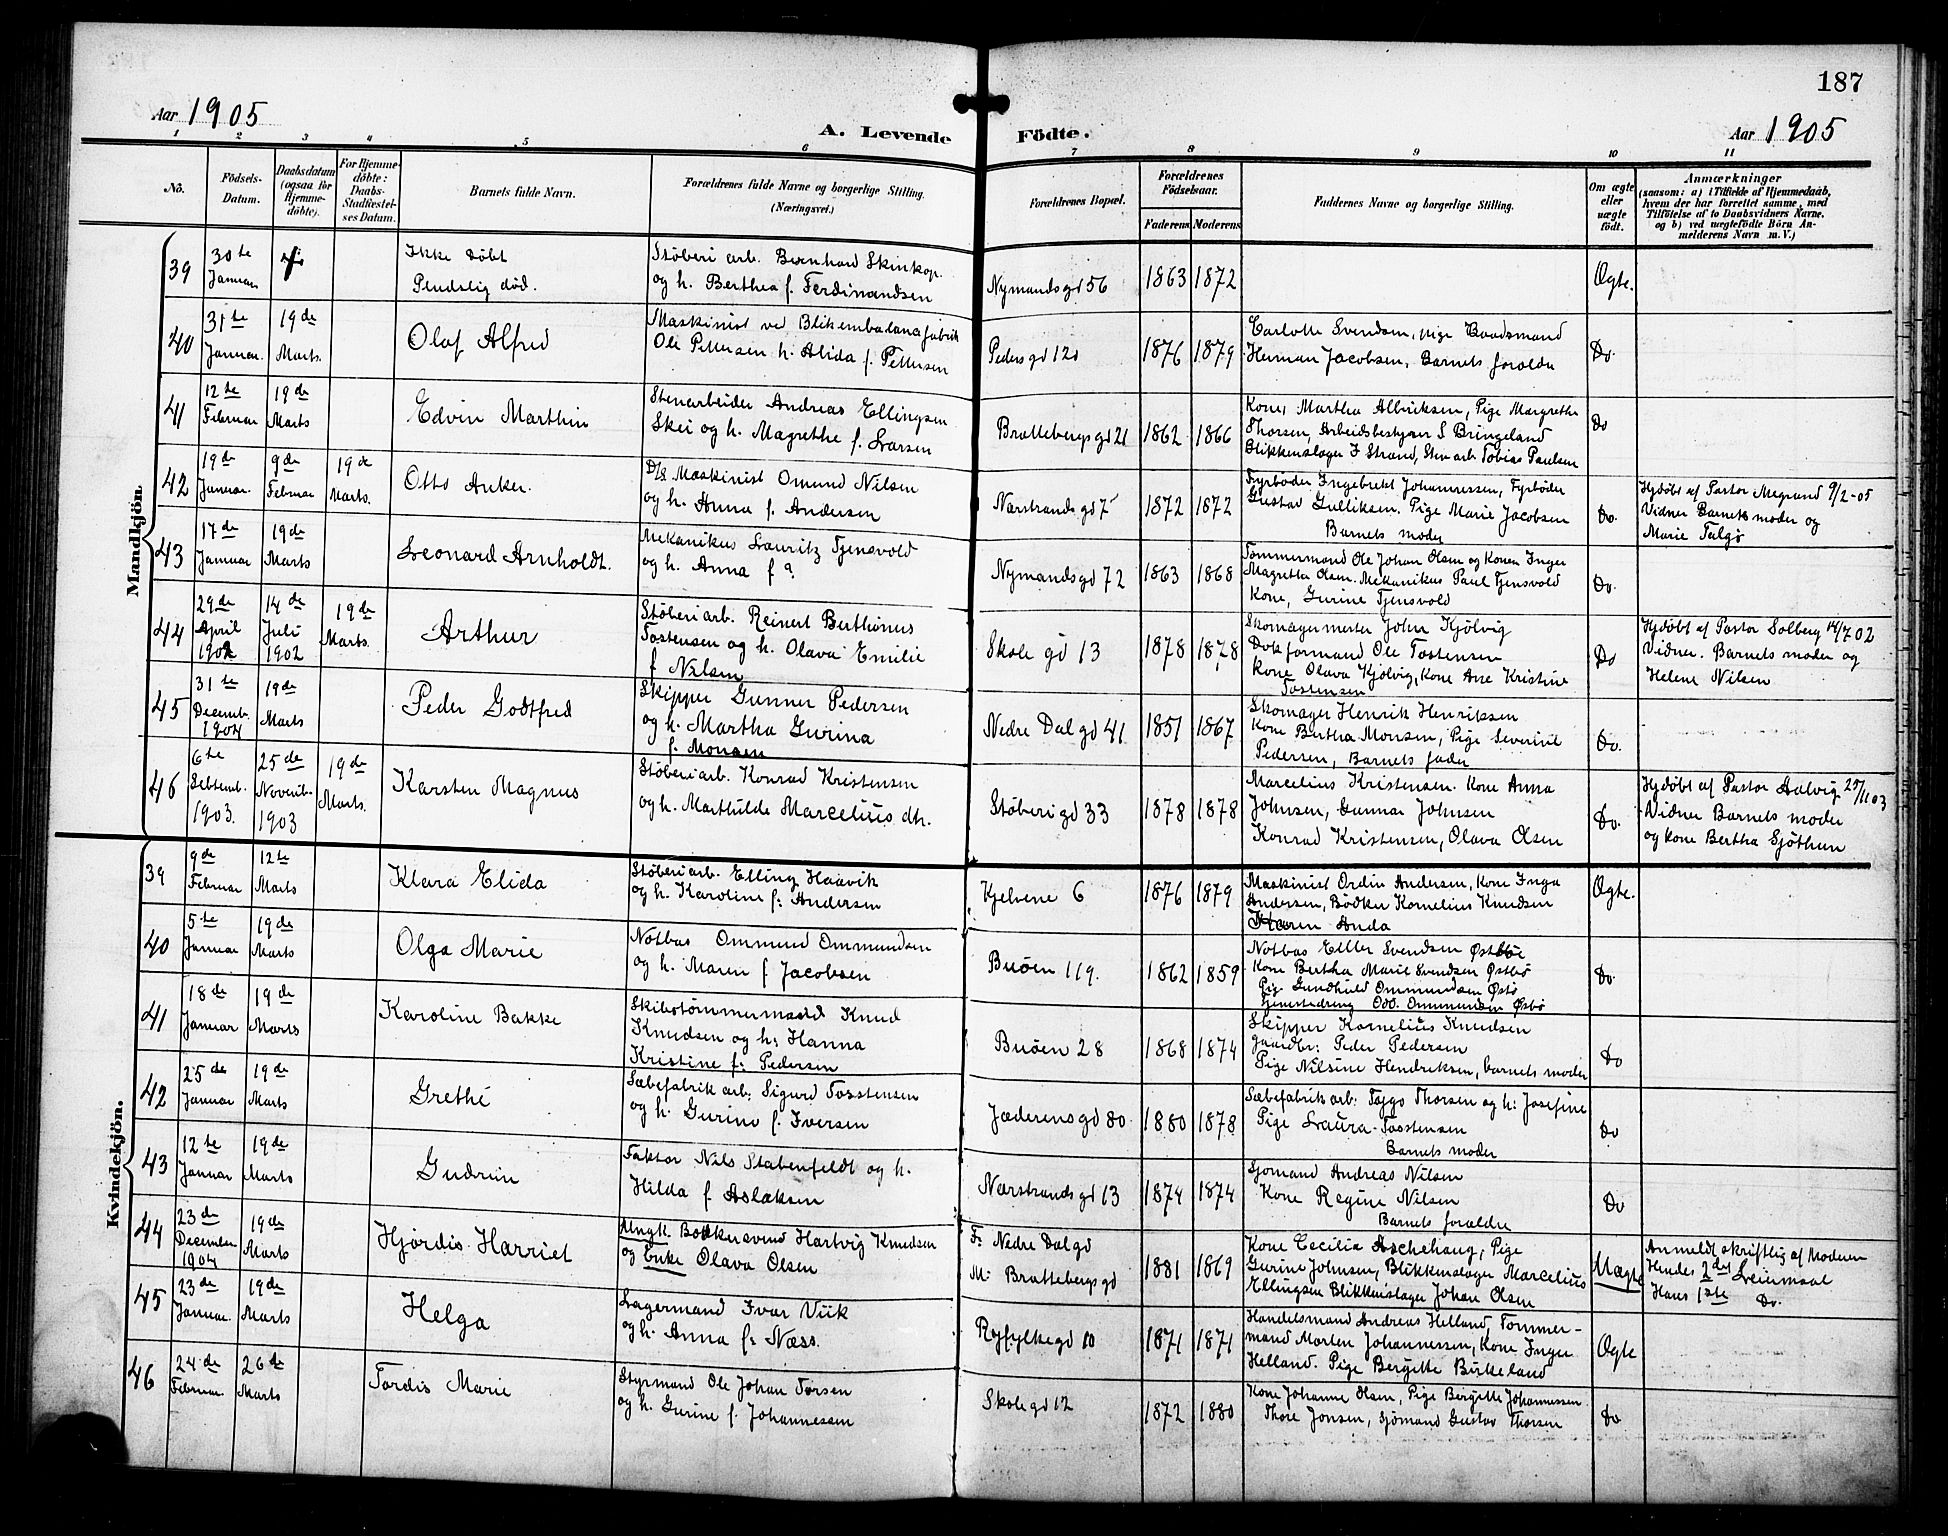 187
Aar 1905
A. Levende Födte.
Aar 1905
1 2 3 4 5 6 7 8 9 10 11
No.
Födsels-
Datum.
Daabsdatum
(ogsaa for
Hjemme-
döbte).
For Hjemme-
döbte:
Daabs-
Stadfæstel-
ses Datum.
Barnets fulde Navn.
Forældrenes fulde Navne og borgerlige Stilling.
(Næringsvei.)
Forældrenes Bopæl.
Forældrenes
Födselsaar.
Faderens Moderens
Faddernes Navne og borgerlige Stilling.
Om ægte
eller
uægte
födt.
Anmærkninger
(saasom: a) i Tilfælde af Hjemmedaab,
hvem der har forrettet samme, med
Tilföielse af to Daabsvidners Navne,
og b) ved uægtefödte Börn An-
melderens Navn m. V.)
Mandkjön.
39
30te
Januar
Ikke döbt
Pludselig död.
Støberi arb. Bernhard Skinkop
og h. Berthea f. Ferdinandsen
Nymandsgd 56
1863 1872
Ægte.
40
31te
Januar.
19de
Marts.
Olaf Alfred
Maskinist ved Blikemballagefabrik
Ole Pettersen h. Alida f. Pettersen
Pedersgd 120
1876 1879
Carlotte Svendsen, Pige Baadsmand
Herman Jacobsen, Barnets foraldre
Do.
41
12te
Februar
19de
Marts
Edvin Marthin
Stenarbeider Andreas Ellingsen
Skei og h. Magrethe f. Larsen
Brattebergsgd 21
1862 1866
Kone, Martha Albriksen, Pige Margrethe
Thorsen, Arbeidsbestyrer S Bringeland
Blikkenslager J Strand, Sten arb Tobias Paulsen
Do
42
19de
Januar.
9de
Februar
19de
Marts.
Otto Anker.
D/s Maskinist Omund Nilsen
og h. Anna f. Andersen
Nærstrandsgd 7
1872 1872
Fyrbøder Ingebrekt Johannessen, Fyrbøder
Gustav Gulliksen. Pige Marie Jacobsen
Barnets moder
Do.
Hjdöbt af Pastor Magrund 9/2-05
Vidner Barnets moder og
Marie Talgø
43
17de
Januar
19de
Marts
Leonard Arnholdt.
Mekanikus Lauritz Tjensvold
og h. Anna f a.
Nymandsgd 72
1863 1868
Tømmermand Ole Johan Olsen og Konen Inger
Magrethe Olsen. Mekanikus Paul Tjensvold
Kone, Gurine Tjensvold
Do.
44
29de
April
1902
14de
Juli
1902
19de
Marts.
Arthur
Støberiarb. Reinert Berthinius
Tostensen og h. Olava Emilie
f Nilsen
Skolegd 13
1878 1878
Skomagermester John Kjölvig
Dokformand Ole Tostensen
Kone Olava Kjölvig, Kone Ane Kristine
Tostensen
Do
Hjdöbt af Pastor Solberg 14/7 02
Vidner. Barnets moder og
Helene Nilsen
45
31te
Decemb.
1904
19de
Marts
Peder Godtfred
Skipper Gunner Pedersen
og h. Martha Gurina
f. Monsen
Nedre Dalgd 41
1851 1867
Skomager Henrik Henriksen
Kone Bertha Monsen, Pige Severine
Pedersen, Barnets fader
Do.
46
6te
Septemb.
1903.
25de
Novemb.
1903
19de
Marts.
Karsten Magnus
Støberiarb. Konrad Kristensen
og h. Marthilde Marcelius dtr.
Støberigd 33
1878 1878
Marcelius Kristensen. Kone Anna
Johnsen, Gunnar Johnsen
Konrad Kristensen, Olava Olsen
Do.
Hjdöbt af Pastor Aalvig 25/11 03
Vidner Barnets moder
og kone Bertha Sjöthun
Kvindekjön.
39
9de
Februar
12te
Marts
Klara Elida
Støberiarb. Elling Haavik
og h. Karoline f: Andersen
Kjelvene 6
1876 1879
Maskinist Ordin Andersen, Kone Inga
Andersen, Bødker Kornelius Knudsen
Karen Anda
Ægte.
40
5te
Januar
19de
Marts
Olga Marie
Notbas Ommund Ommundsen
og h. Maren f Jacobsen
Buøen 119.
1862 1859
Notbas Eller Svendsen Østbø
Kone Bertha Marie Svendsen Østbø
Pig. Gundhild Ommundsen Østø
Tjenestedreng Odd. Ommundsen Østbø
Do.
41
18de
Januar
19de
Marts
Karoline Bakke
Skibstømmermand Knud
Knudsen og h: Hanna
Kristine f: Pedersen
Buøen 28
1868 1874
Skipper Kornelius Knudsen
gaardbr: Peder Pedersen
Pige Nilsine Hendriksen, barnets moder
Do
42
25de
Januar
19de
Marts
Grethe
Sæbefabrik arb: Sigurd Tosstensen
og h. Gurine f. Iversen
Jæderensgd 80.
1880 1878
Sæbefabrik arb: Tygo Thorsen og h: Josefine
Pige Laura Tosstensen
Barnets moder
Do
43
12te
Januar
19de
Marts
Gudrun
Faktor Nils Stabenfeldt og h.
Hilda f. Aslaksen
Nærstrandsgd 13
1874 1874
Sjömand Andreas Nilsen
Kone Regine Nilsen
Barnets foraldre
Do
44
23de
December
1904
19de
Marts
Hjördis Harriet
Ungk. Bødkersvend Hartvig Knudsen
og Enke Olava Olsen
F: Nedre Dalgd
M: Brattebergsgd
1881 1869
Kone Cecilia Aschehaug, Pige
Gurine Johnsen, Blikkenslager Marcelius
Ellingsen Blikkenslager Johan Olsen
Uægte
Anmeldt skriftlig af Moderen
Hendes 2det Leiermaal
Hans 1ste Do.
45
23de
Januar.
19de
Marts
Helga
Lagermand Ivar Viik
og h. Anna f: Næss.
Ryfylkegd 10
1871 1871
Handelsmand Andreas Helland, Tømmer-
mand Morten Johannessen, Kone Inger
Helland. Pige Bergitte Birkeland
Ægte
46
24de
Februar
26de
Marts
Tordis Marie
Styrmand Ole Johan Torsen
og h. Gurine f. Johannessen
Skolegd 12
1872 1880
Kone Johanne Olsen, Pige Bergitte Johannessen.
Thore Jonsen, Sjömand Gustav Thorsen
Do